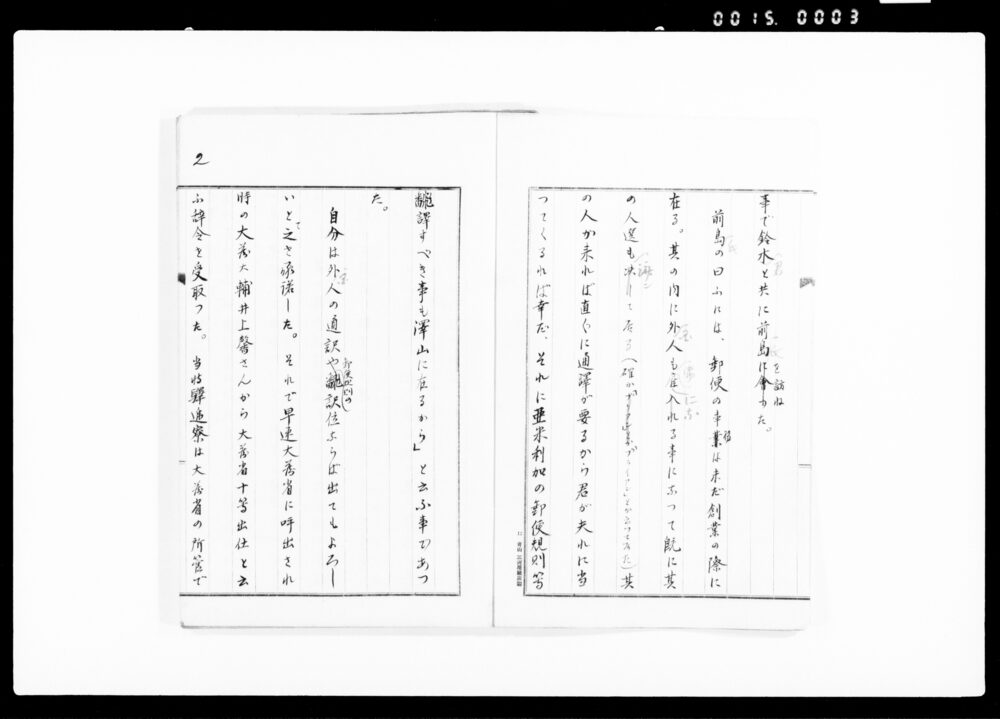 0015.0003
事で鈴木と共に前島に會つた。
前島の曰ふには、郵便の事業は未だ創業の際に
在る。其の内に外人も雇入れる事になつて既に其
の人選も決りて居る(確か
の人が来れば直ぐに通譯が要るから君が夫れに当
つてくるれば幸だ、それに亜米利加の郵便規則等
飜譯すべき事も澤山に在るから」と云ふ事であつ
た。
自分は外人の通訳や飜訳位ならば出てもよろし
いとて之を承諾した。それで早速大蔵省に呼出され
時の大蔵大輔井上馨さんから大蔵省十等出仕と云
ふ辞令を受取つた。当時驛逓寮は大蔵省の所管で
2